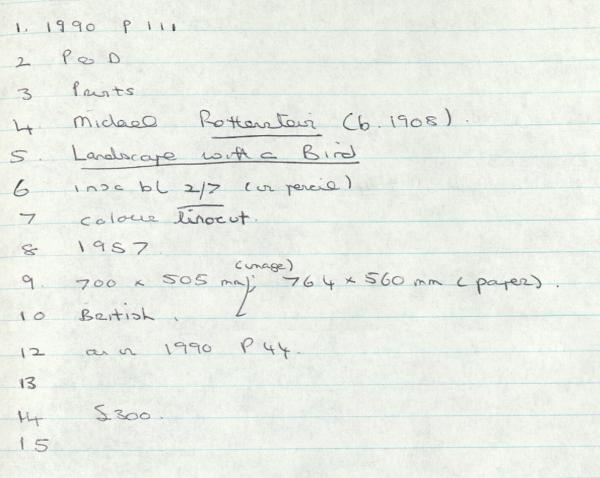 1. 1990 P 111
2 P & D
3 Prints
4. Michael Rothenstein (b. 1908).
5. Landscape with a Bird
6 insc bl 2/7 (in pencil)
7 colour linocut.
8 1957
(image)
9. 700 x 505 mm; 764 x 560 mm (paper).
10 British.
12 as in 1990 P 44.
13
14 £300.
15